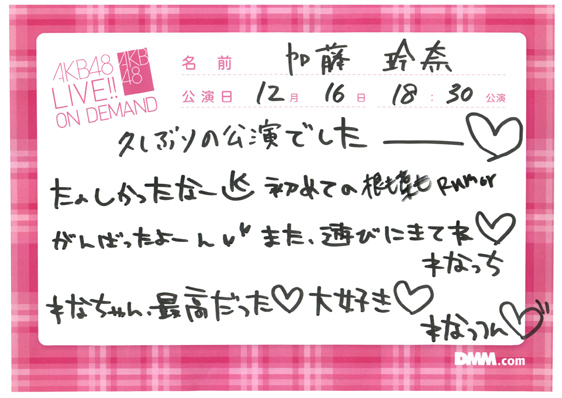 AKB48
LIVE!!
ON DEMAND
AKB
48
名前 加藤 玲奈
公演日 12月 16日 18:30 公演
久しぶりの公演でした ―――♡
たのしかったなー 初めての 根も葉も Rumor
がんばったよーん♥♥ また、遊びにきてね♡
れなっち
れなちゃん、最高だった♡ 大好き♡
れなっつん♡
DMM.com